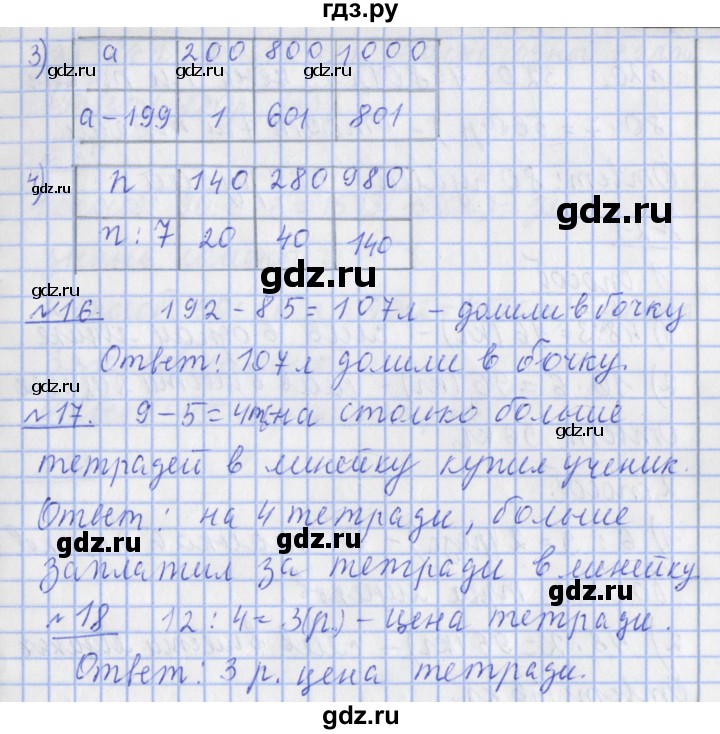 гдз.ру
3) a 200 800 1000
gdz.ru gdz.ru gdz.ru
a-199 1 601 801
4) n 140 280 980
gdz.ru
gdz.ru
n:7 20 40 140
gdz.ru
№16. 192-85=107л-долили в бочку
gdz.ru gdz.ru
Ответ: 107л долили в бочку.
gdz.ru
№17. 9-5=4 на столко больше
gdz.ru
тетрадей в линейку купил ученик.
Ответ: на 4 тетради, больше
gdz.ru gdz.ru
заплатил за тетради в линейку
gdz.ru
№18 12:4=3(р.)-цена тетради.
gdz.ru gdz.ru
Ответ: 3 р. цена тетради.
gdz.ru
gdz.ru